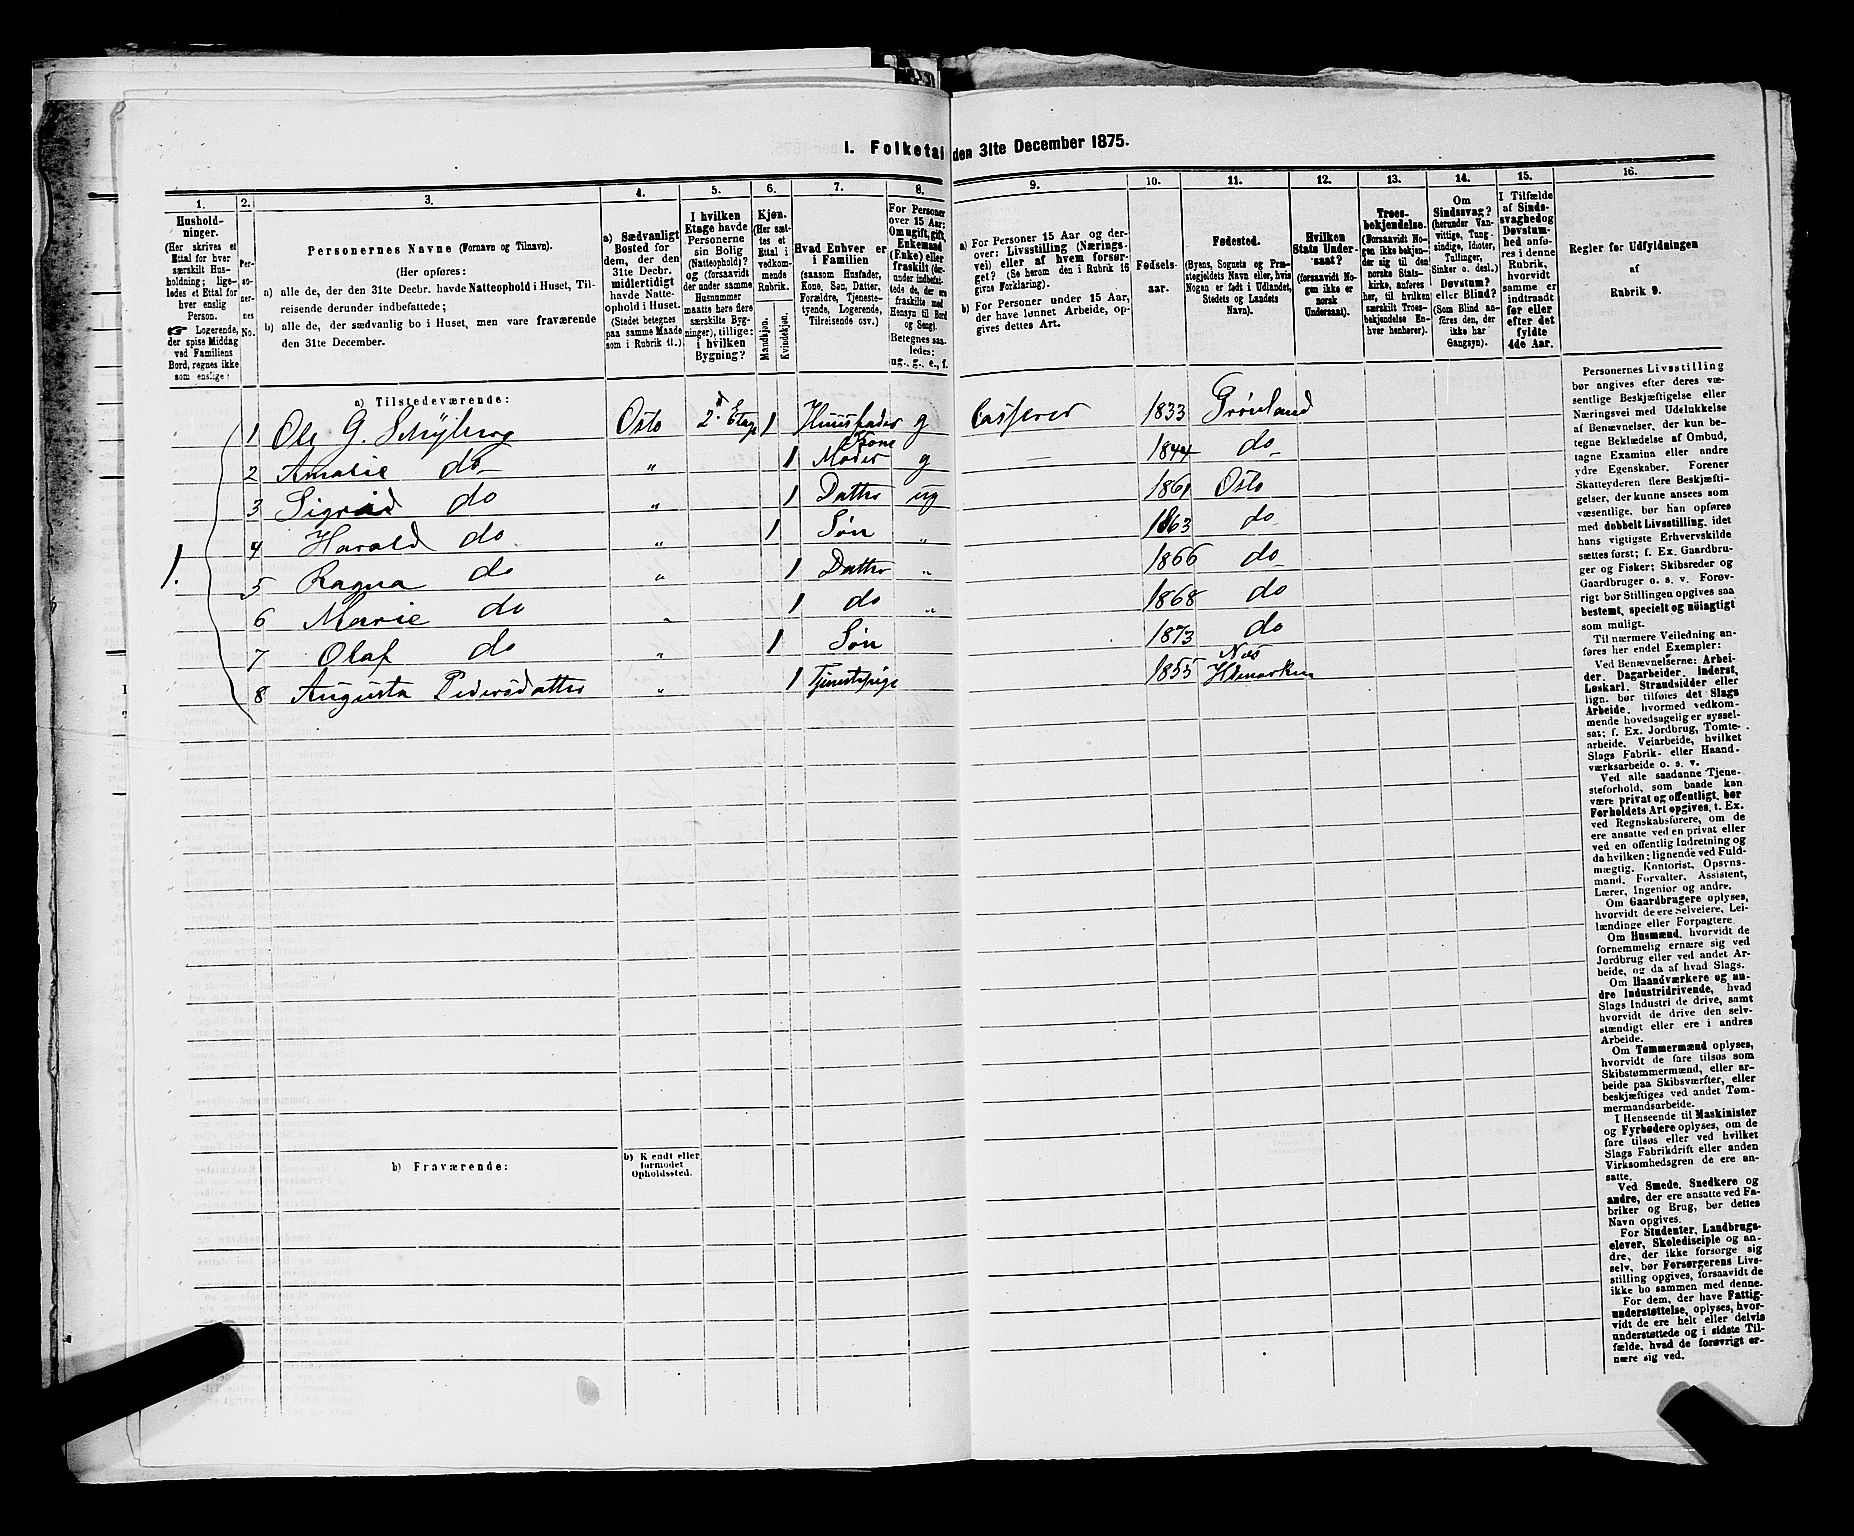 I. Folketal den 31te December 1875.
1. 2. 3. 4. 5. 6. 7. 8. 9. 10. 11. 12. 13. 14. 15. 16.
Husholdninger.
(Her skrives et
Ettal for hver
særskilt Husholdning;
ligeledes et Ettal for
hver enslig
Person.
☞ Logerende,
der spise Middag
ved Familiens
Bord, regnes ikke
som enslige.
Personernes No.
Personernes Navne (Fornavn og Tilnavn).
(Her opføres:
a) alle de, der den 31te Decbr. havde Natteophold i Huset, Tilreisende derunder indbefattede;
b) alle de, der sædvanlig bo i Huset, men vare fraværende
den 31te December.
a) Sædvanligt
Bosted for
dem, der den
31te Decbr.
midlertidigt
havde Natteophold i Huset.
(Stedet betegnes
paa samme Maade
som i Rubrik 11.)
I hvilken
Etage havde
Personerne
sin Bolig
(Natteophold)?
og (forsaavidt
der under samme
Husnummer
maatte høre flere
særskilte Bygninger), tillige:
i hvilken
Bygning?
Kjøn.
(Her sættes et
Ettal i
vedkommende
Rubrik.
Mandkjøn.
Kvindekjøn.
Hvad Enhver er
i Familien
(saasom Husfader,
Kone, Søn, Datter,
Forældre, Tjenestetyende, Logerende,
Tilreisende osv.)
For Personer
over 15 Aar:
Om ugift, gift,
Enkemand
(Enke) eller
fraskilt (derunder indbefattede de, der ere
fraskilte med
Hensyn til Bord
og Seng).
Betegnes saaledes:
ug., g., e., f.
a) For Personer 15 Aar og derover: Livsstilling (Næringsvei) eller af hvem forsørget? (Se herom den i Rubrik 16
givne Forklaring).
b) For Personer under 15 Aar,
der have lønnet Arbeide, opgives dettes Art.
Fødselsaar.
Fødested.
(Byens, Sognets og Præstegjeldets Navn eller, hvis
Nogen er født i Udlandet,
Stedets og Landets
Navn).
Hvilken
Stats Undersaat?
(forsaavidt Nogen ikke er
norsk
Undersaat).
Troesbekjendelse.
(Forsaavidt Nogen ikke bekjender sig til den
norske Statskirke, anføres
her, til hvilken
særskilt Troesbekjendelse Enhver henhører).
Om
Sindssvag?
(herunder Vanvittige, Tungsindige, Idioter,
Tullinger,
Sinker o. desl.)
Døvstum?
eller Blind?
(Som Blind anføres den, der
ikke har
Gangsyn).
I Tilfælde
af Sindssvaghed og
Døvstumhed anføres i denne
Rubrik,
hvorvidt
samme er
indtraadt
før eller
efter det
fyldte
4de Aar.
Regler for Udfyldningen
af
Rubrik 9.
a) Tilstedeværende:
1 Ole G. Schyberg Oslo 2den Etage 1 Huusfader g Casserer 1833 Grønland
2 Amalie do " 1 Kone Moder g — 1844 do
3 Sigrid do " 1 Datter ug 1861 Oslo
4 Harald do " 1 Søn " 1863 do
1. 5 Ragna do " 1 Datter " 1866 do
6 Marie do " 1 do " 1868 do
7 Olaf do " 1 Søn 1873 do
8 Augusta Pedersdatter " 1 Tjenestepige 1855 Næs Hdmarken
b) Fraværende:
b) Kjendt eller
formodet
Opholdssted.
Personernes Livsstilling
bør angives efter deres væsentlige Beskjæftigelse eller
Næringsvei med Udelukkelse
af Benævnelser, der kun betegne Beklædelse af Ombud,
tagne Examina eller andre
ydre Egenskaber. Forener
Skatteyderen flere Beskjæftigelser, der kunne ansees som
væsentlige, bør han opføres
med dobbelt Livsstilling, idet
hans vigtigste Erhvervskilde
sættes først; f. Ex. Gaardbruger og Fisker; Skibsreder og
Gaardbruger o. s. v. Forøvrigt bør Stillingen opgives saa
bestemt, specielt og nøiagtigt
som muligt.
Til nærmere Veiledning anføres her endel Exempler:
Ved Benævnelserne: Arbeider, Dagarbeider, Inderst,
Løskarl, Strandsidder eller
lign. bør tilføies det Slags
Arbeide, hvormed vedkommende hovedsagelig er sysselsat; f. Ex. Jordbrug, Tomtearbeide, Veiarbeide, hvilket
Slags Fabrik- eller Haandværksarbeide o. s. v.
Ved alle saadanne Tjenesteforhold, som baade kan
være privat og offentligt, bør
Forholdets Art opgives, t. Ex.
ved Regnskabsførere, om de
ere ansatte ved en privat eller
ved en offentlig Indretning og
da hvilken; lignende ved Fuldmægtig, Kontorist, Opsynsmand, Forvalter, Assistent,
Lærer, Ingeniør og andre.
Om Gaardbrugere oplyses,
hvorvidt de ere Selveiere, Leilændinge eller Forpagtere.
Om Husmænd, hvorvidt de
fornemmelig ernære sig ved
Jordbrug eller ved andet Arbeide, og da af hvad Slags.
Om Haandværkere og andre Industridrivende, hvad
Slags Industri de drive, samt
hvorvidt de drive den selvstændigt eller ere i andres
Arbeide.
Om Tømmermænd oplyses,
hvorvidt de fare tilsøs som
Skibstømmermænd, eller arbeide paa Skibsværfter, eller
beskjæftiges ved andet Tømmermandsarbeide.
I Henseende til Maskinister
og Fyrbødere oplyses, om de
fare tilsøs eller ved hvilket
Slags Fabrikdrift eller anden
Virksomhedsgren de ere ansatte.
Ved Smede, Snedkere og
andre, der ere ansatte ved Fabriker og Brug, bør dettes
Navn opgives.
For Studenter, Landbrugselever, Skoledisciple og andre, der ikke forsørge sig
selv, bør Forsørgerens Livsstilling opgives, forsaavidt de
ikke bo sammen med denne.
For dem, der have Fattigunderstøttelse, oplyses, hvorvidt de ere helt eller delvis
understøttede og i sidste Tilfælde, hvad de forøvrigt ernære sig ved.